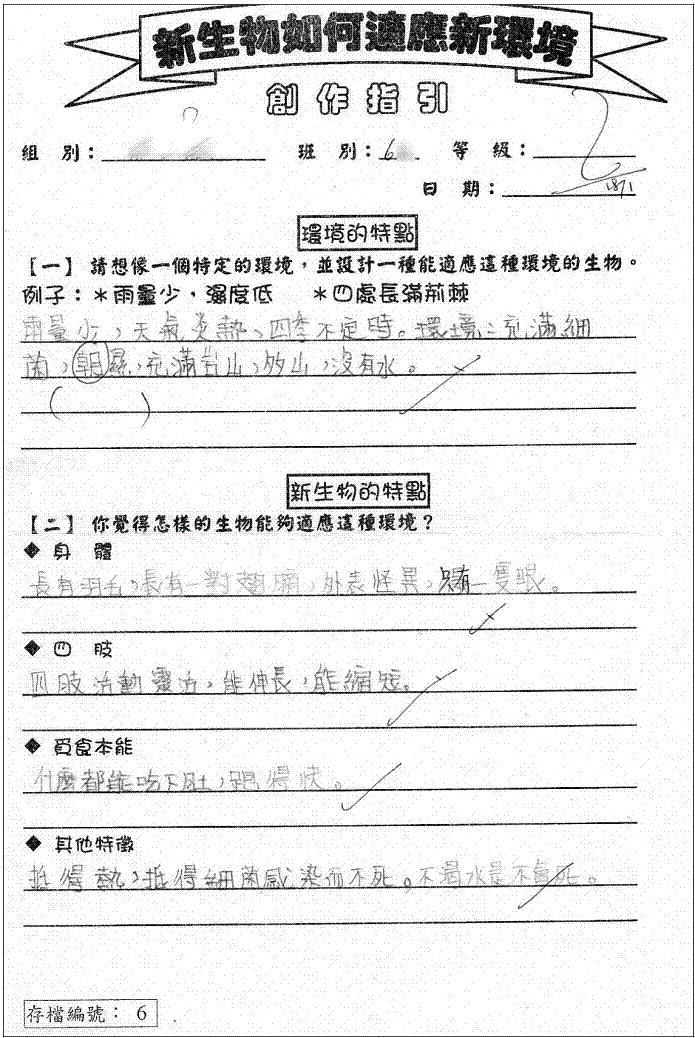 新生物如何適應新環境
創作指引
組 別： 班 別：6 等 級：
日 期： 18/1
環境的特點
【一】 請想像一個特定的環境，並設計一種能適應這種環境的生物。
例子：＊雨量少，濕度低 ＊四處長滿荊棘
雨量少，天氣炎熱，四季不定時。環境：充滿細
菌，朝濕，充滿岩山，多山，沒有水。
( )
新生物的特點
【二】 你覺得怎樣的生物能夠適應這種環境？
◆ 身 體
長有羽毛，長有一對翅膀，外表怪異，只有一隻眼。
◆ 四 肢
四肢活動靈活，能伸長，能縮短。
◆ 覓食本能
什麼都能吃下肚，跑得快。
◆ 其他特徵
抵得熱，抵得細菌感染而不死。不喝水是不會死。
存檔編號： 6